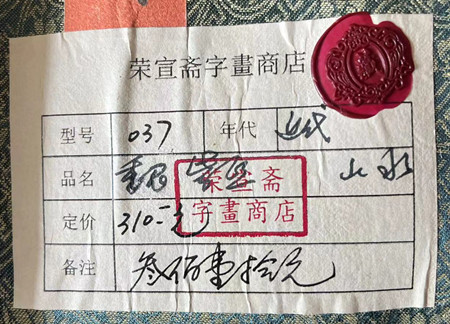 荣宣斋字畫商店
型号 037 年代 近代
品名 山水
荣宣斋
字畫商店
定价 310-元
备注 叁佰壹拾元